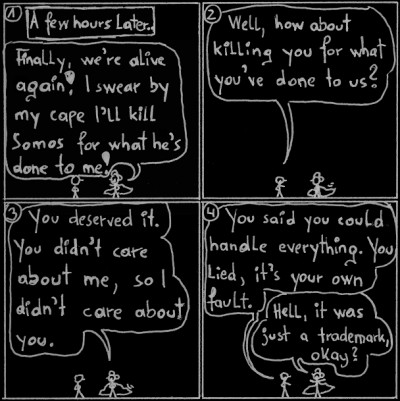 1
A few hours later..
Finally, we're alive
again! I swear by
my cape I'll kill
Somos for what he's
done to me!
2
Well, how about
killing you for what
you've done to us?
3
You deserved it.
You didn't care
about me, so I
didn't care about
you.
4
You said you could
handle everything. You
Lied, it's your own
fault.
Hell, it was
just a trademark,
okay?